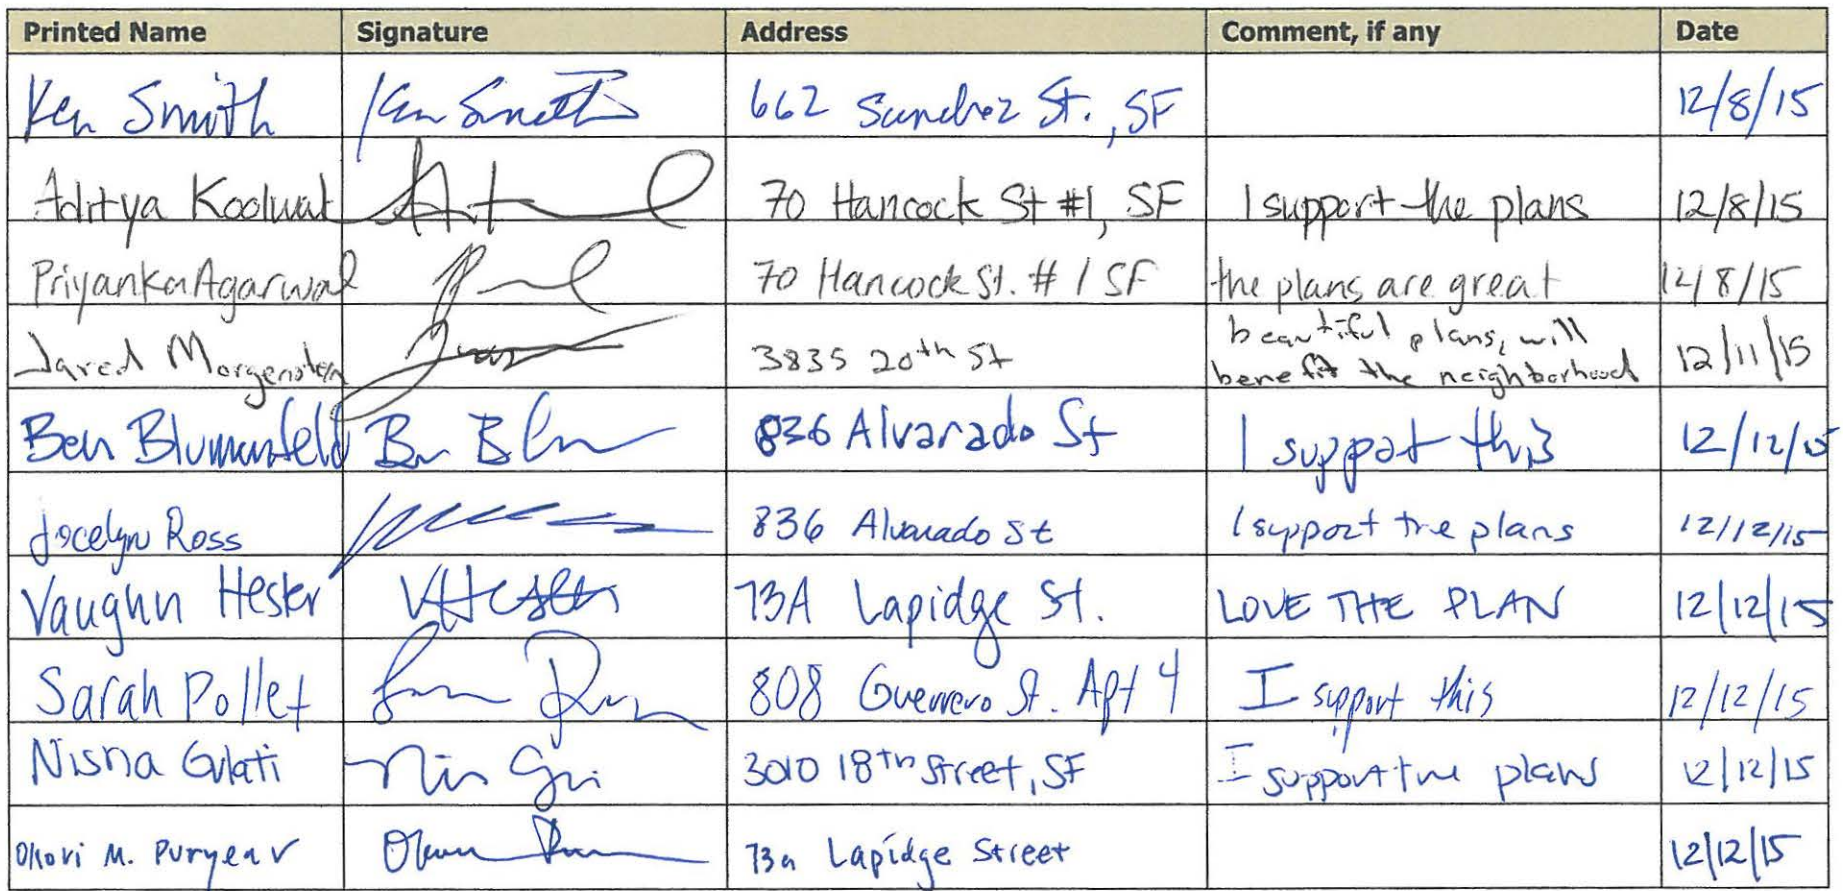 Printed Name Signature Address Comment, if any Date
Ken Smith Ken Smith 662 Sanchez St., SF 12/8/15
Aditya Koolwal 70 Hancock St #1, SF I support the plans 12/8/15
Priyanka Agarwal 70 Hancock St. #1 SF the plans are great 12/8/15
Jared Morgenstern 3835 20th St beautiful plans, will
benefit the neighborhood 12/11/15
Ben Blumenfeld Ben Bl 836 Alvarado St I support this 12/12/15
Jocelyn Ross 836 Alvarado St I support the plans 12/12/15
Vaughn Hester VHester 73A Lapidge St. LOVE THE PLAN 12/12/15
Sarah Pollet 808 Guerrero St. Apt 4 I support this 12/12/15
Nisha Gulati 3010 18th Street, SF I support the plans 12/12/15
Ohovi M. Puryear 73a Lapidge Street 12/12/15